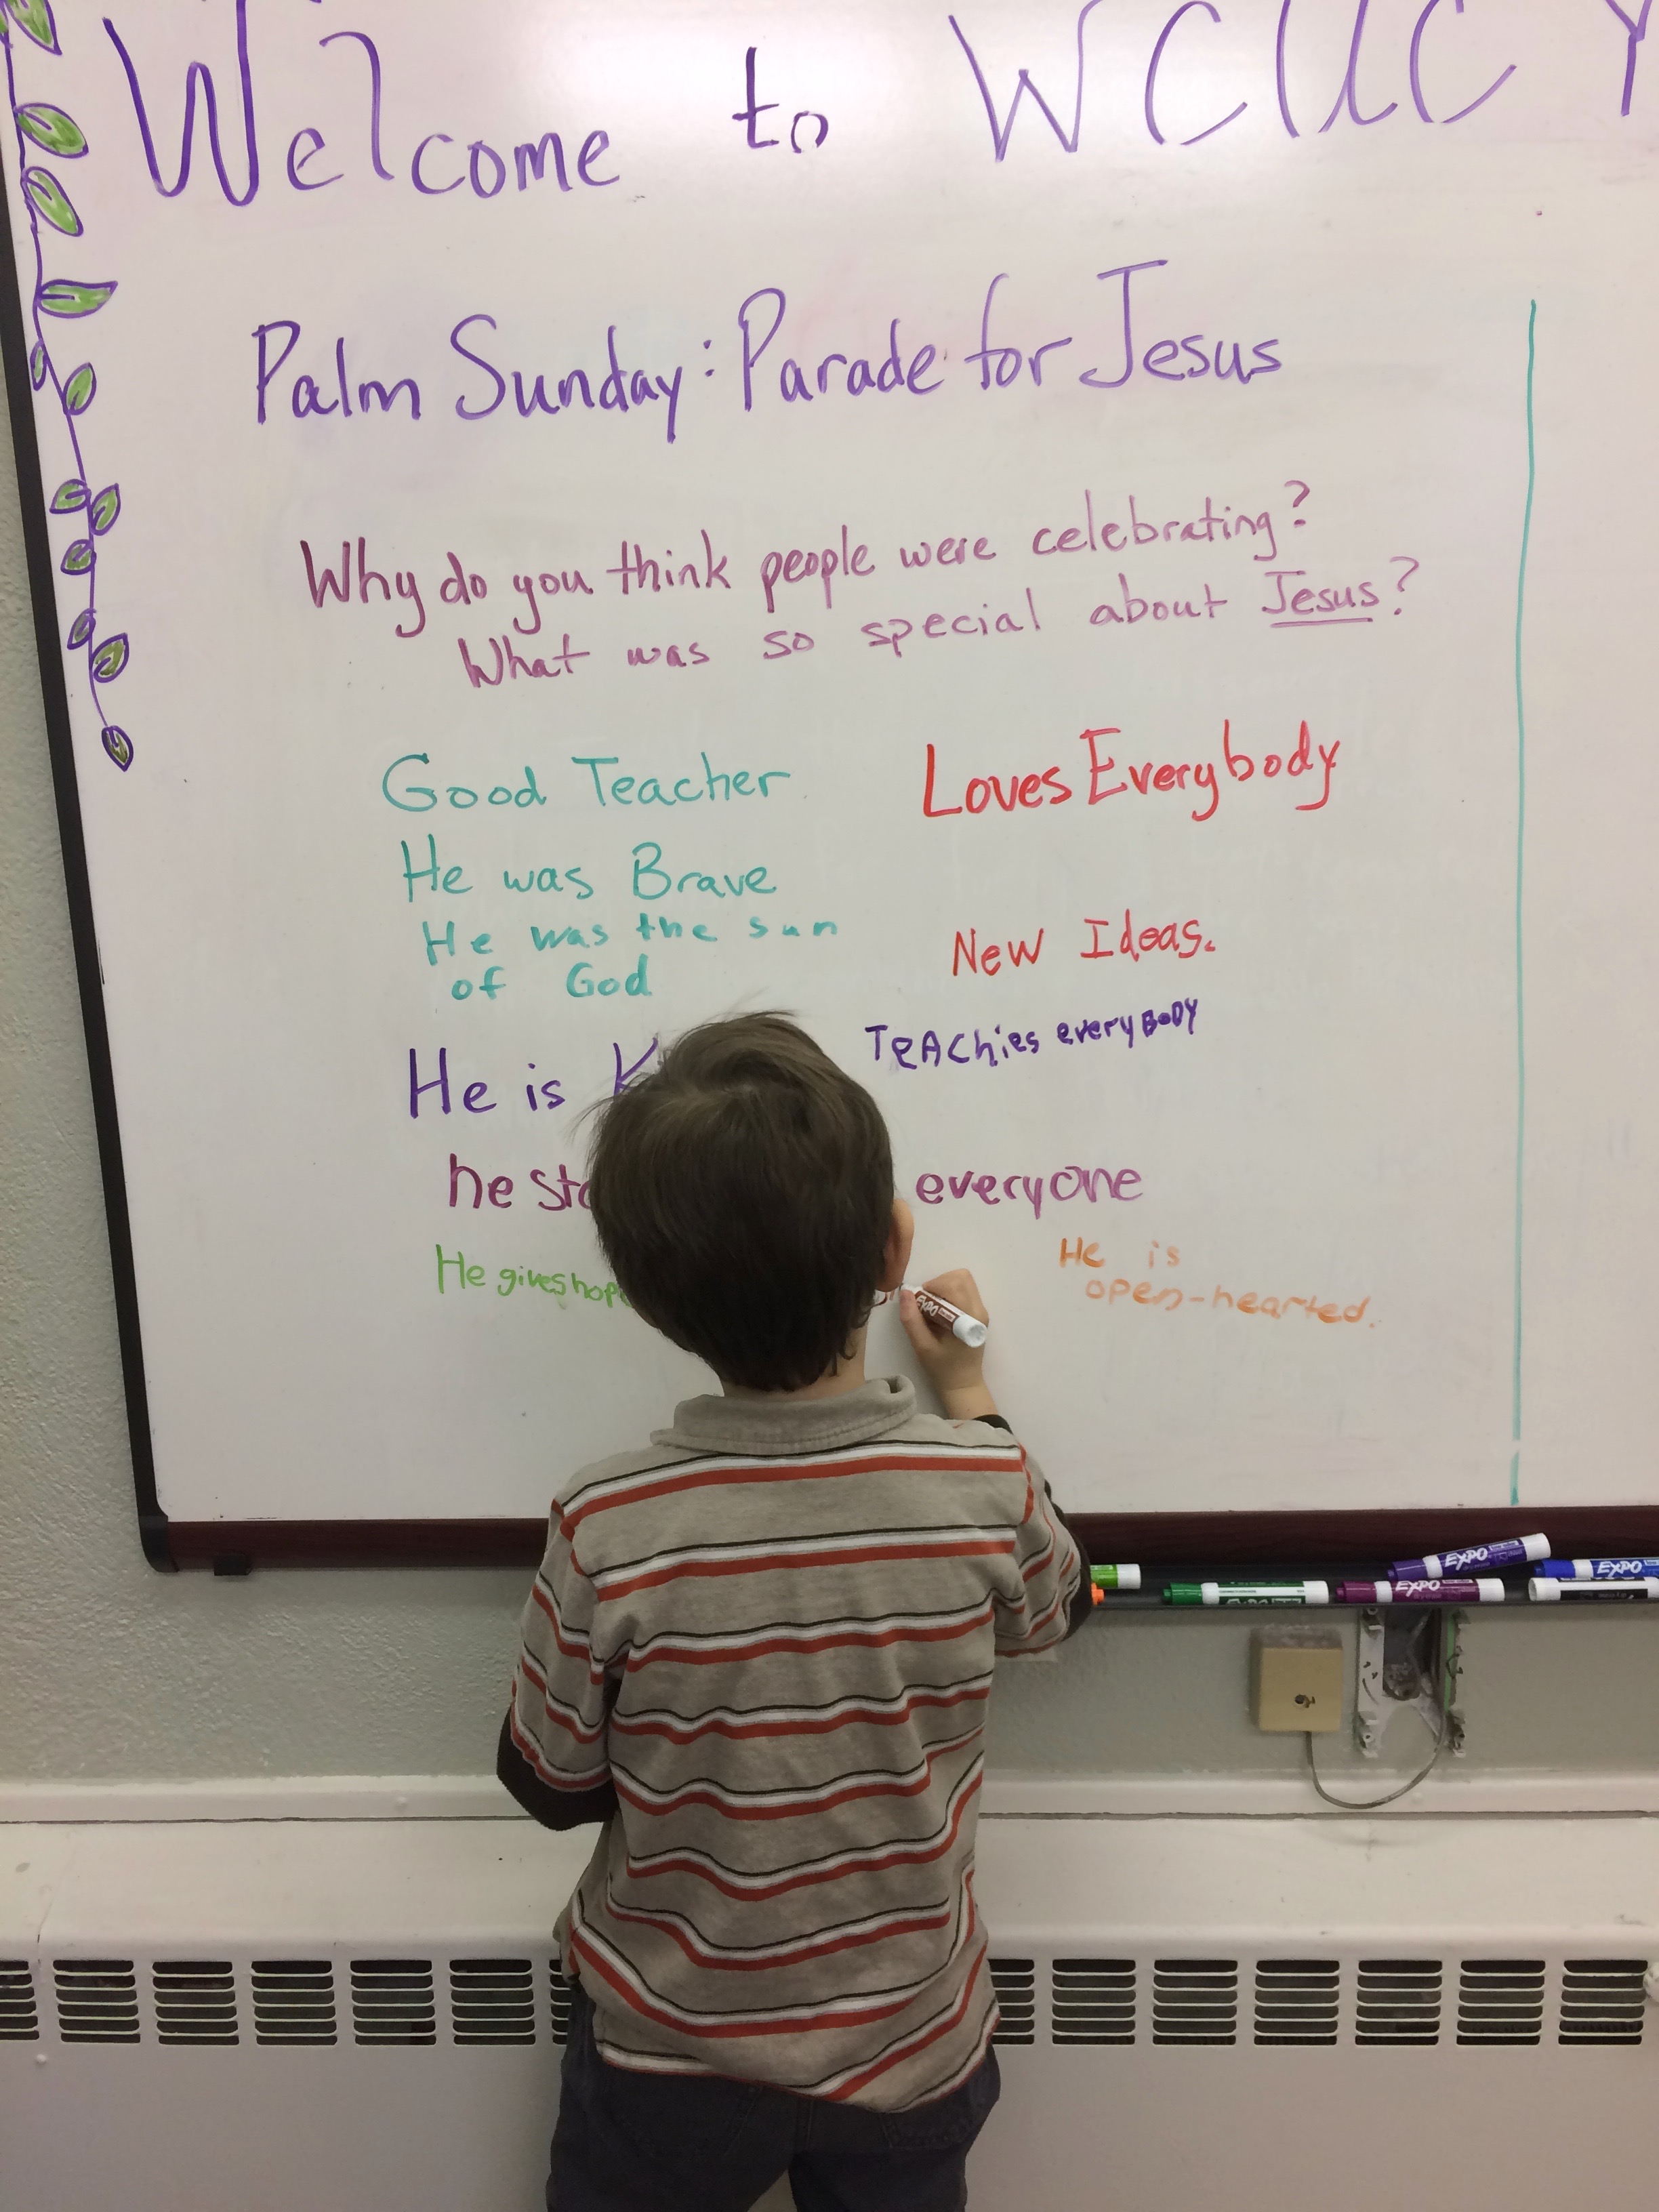 Welcome to WCUC Y
Palm Sunday: Parade for Jesus
Why do you think people were celebrating?
What was so special about Jesus?
Good Teacher
Loves Everybody
He was Brave
He was the sun
of God
New Ideas.
He is
TeAChies everyBoDY
he everyone
He gives hope
He is
open-hearted.
EXPO
EXPO
EXPO
EXPO
EXPO